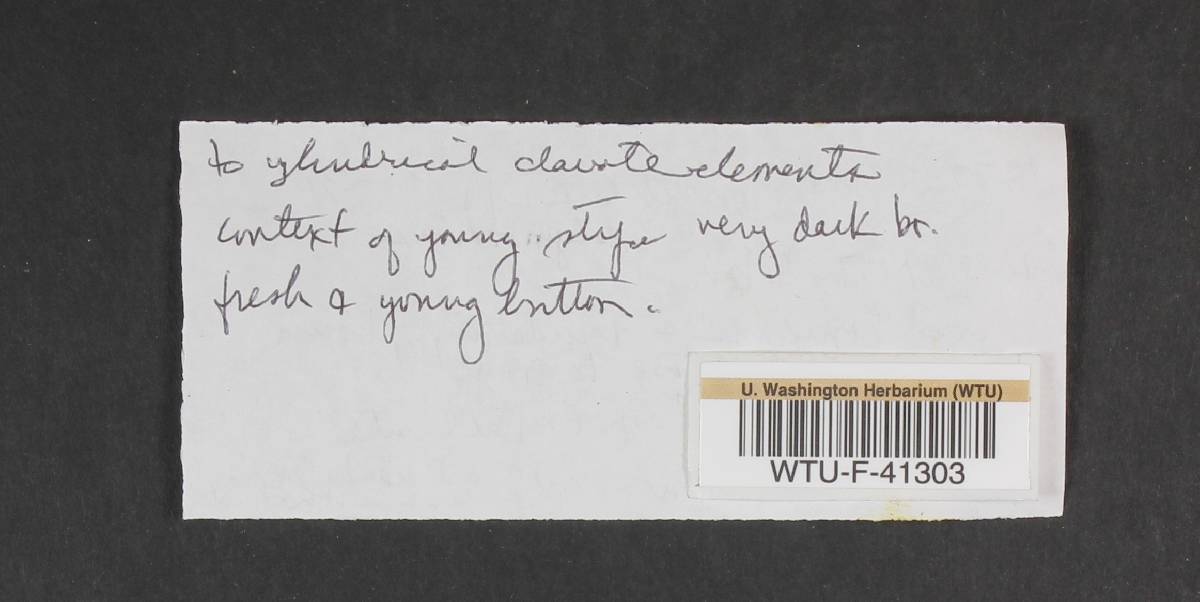 to cylindrical clavate elements
context of young stipe very dark br.
fresh & young button.
U. Washington Herbarium (WTU)
WTU-F-41303